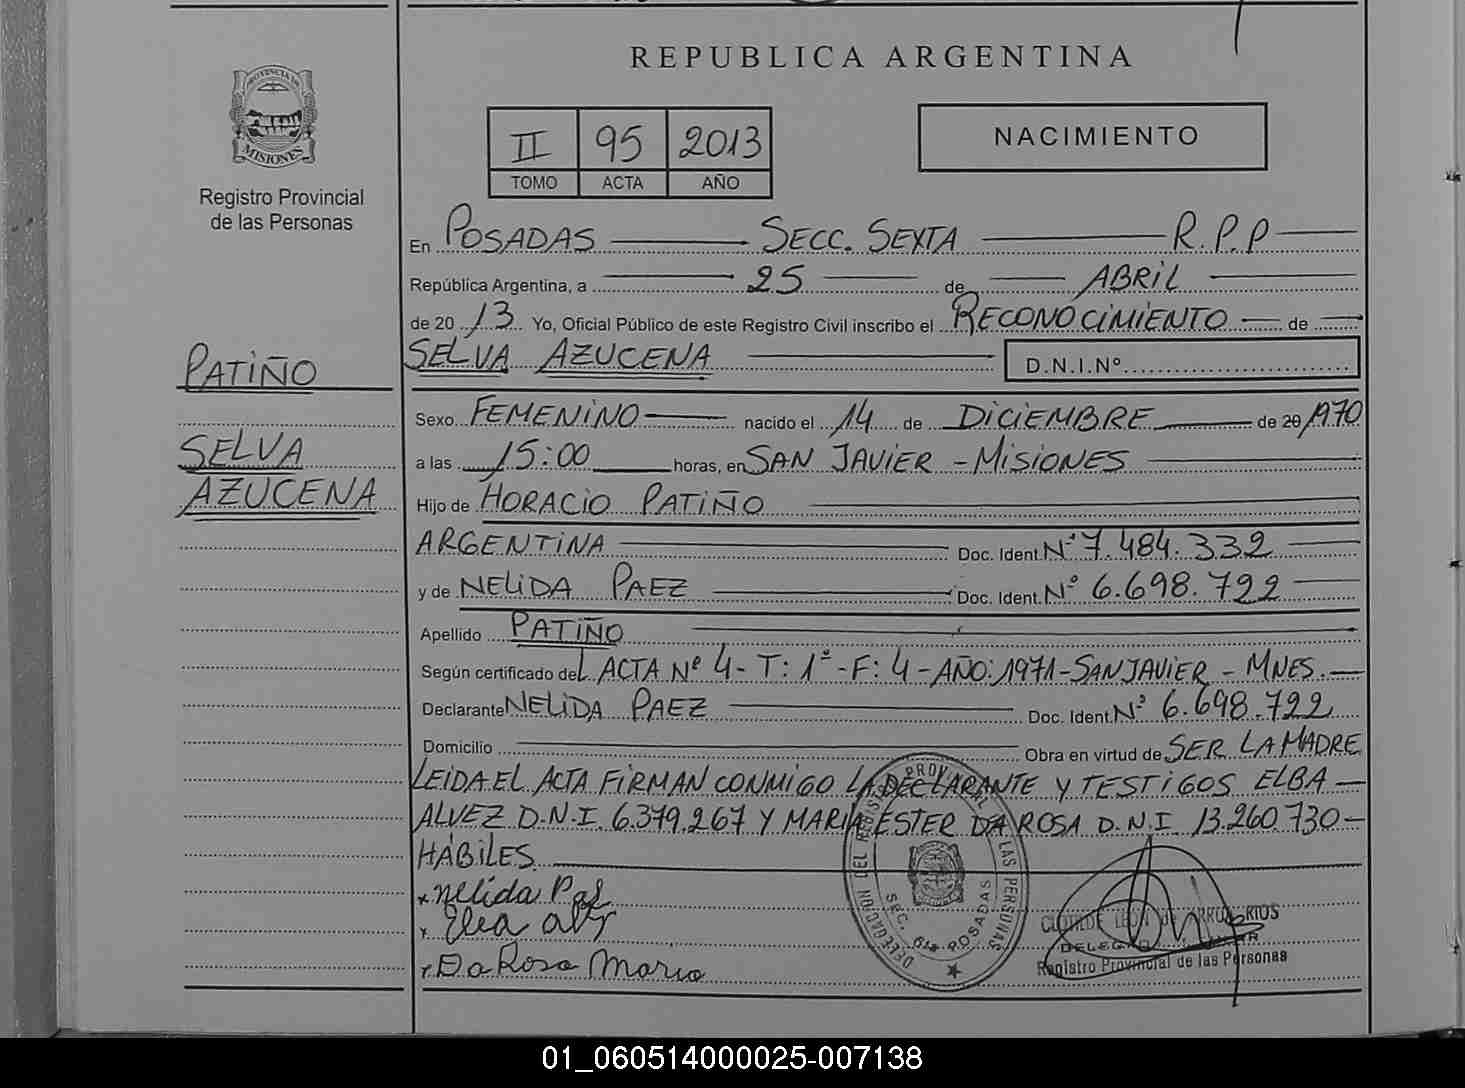 REPUBLICA ARGENTINA
PROVINCIA DE
MISIONES
Registro Provincial
de las Personas
II 95 2013
TOMO ACTA AÑO
NACIMIENTO
En POSADAS SECC. SEXTA R.P.P
República Argentina, a 25 de ABRIL
de 20 13 Yo, Oficial Público de este Registro Civil inscribo el RECONOCIMIENTO de
PATIÑO
SELVA AZUCENA D.N.I.Nº
Sexo FEMENINO nacido el 14 de DICIEMBRE de 20 1970
SELVA
a las 15:00 horas, en SAN JAVIER - MISIONES
AZUCENA
Hijo de HORACIO PATIÑO
ARGENTINA Doc. Ident. Nº 7.484.332
y de NELIDA PAEZ Doc. Ident. Nº 6.698.722
Apellido PATIÑO
Según certificado del ACTA Nº 4 - T: 1º - F: 4 - AÑO: 1971 - SAN JAVIER - MNES.
Declarante NELIDA PAEZ Doc. Ident. Nº 6.698.722
Domicilio Obra en virtud de SER LA MADRE
LEIDA EL ACTA FIRMAN CONMIGO LA DECLARANTE Y TESTIGOS ELBA
ALVEZ D.N.I. 6.379.267 Y MARIA ESTER DA ROSA D.N.I. 13.260.730
HÁBILES
Nelida Paz
Da Rosa Maria
DELEGACION DEL REGISTRO PROVINCIAL DE LAS PERSONAS
SEC. 6ta POSADAS
Registro Provincial de las Personas
01_060514000025-007138